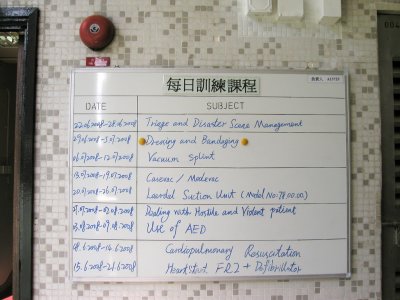 每日訓練課程
負責人
DATE SUBJECT
22.06.2008-28.06.2008 Triage and Disaster Scene Management
29.06.2008-5.07.2008 Dressing and Bandaging
06.07.2008-12.07.2008 Vacuum splint
13.07.2008-19.07.2008 Casevac / Medevac
20.07.2008-26.07.2008 Laerdal Suction Unit (Model No: 78.00.00)
27.07.2008-02.08.2008 Dealing with Hostile and Violent patient
03.08.2008-09.08.2008 Use of AED
08.6.2008-14.6.2008 Cardiopulmonary Resuscitation
15.6.2008-21.6.2008 Heartstart FR2+ Defibrillator